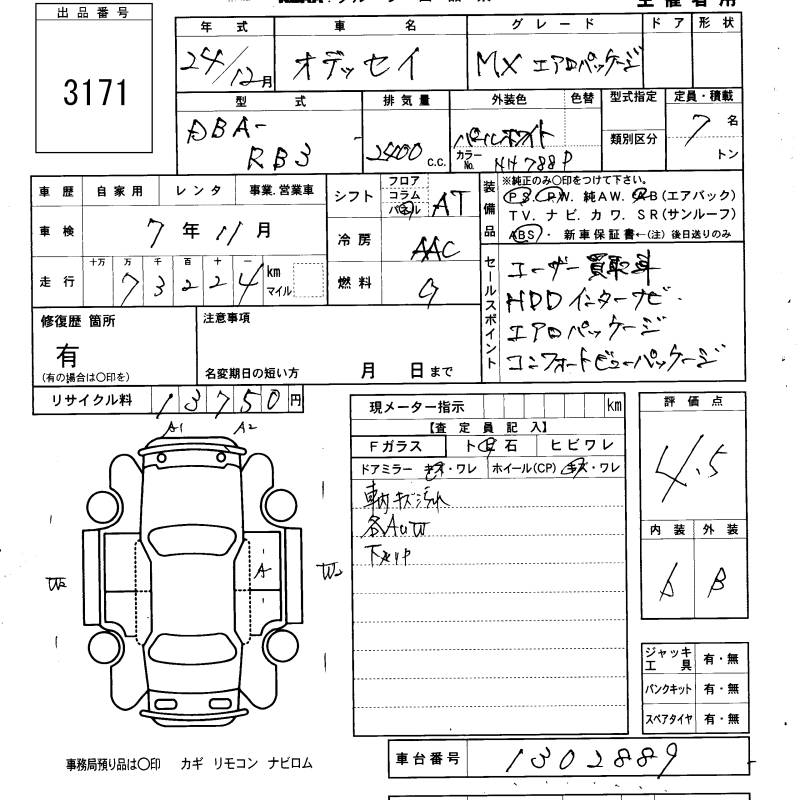 主催者用
出品番号
3171
年式 車名 グレード ドア 形状
24/12月 オデッセイ MX エアロパッケージ
型式 排気量 外装色 色替 型式指定 定員・積載
DBA-RB3 2400 c.c. パールホワイト カラーNo. NH788P 類別区分 7名 トン
車歴 自家用 レンタ 事業.営業車
シフト フロア コラム パネル AT
装備品 ※純正のみ○印をつけて下さい。
PS. PW. 純AW. AB(エアバック)
TV. ナビ. カワ. SR(サンルーフ)
ABS . 新車保証書←(注)後日送りのみ
車検 7年11月
冷房 AAC
走行 十万 万 千 百 十 一 73224 km マイル
燃料 G
セールスポイント
ユーザー買取車
HDDインターナビ.
エアロパッケージ
コンフォートビューパッケージ
修復歴 箇所
有
(有の場合は○印を)
注意事項
名変期日の短い方 月 日まで
リサイクル料 13750円
現メーター指示 km
【査定員記入】
Fガラス ト日石 ヒビワレ
ドアミラー キズ・ワレ ホイール(CP) キズ・ワレ
車内キズ汚れ
各AUW
評価点
4.5
内装 外装
B
A1 A2
A
W2 W2
ジャッキ工具 有・無
パンクキット 有・無
スペアタイヤ 有・無
事務局預り品は○印 カギ リモコン ナビロム
車台番号 1302889